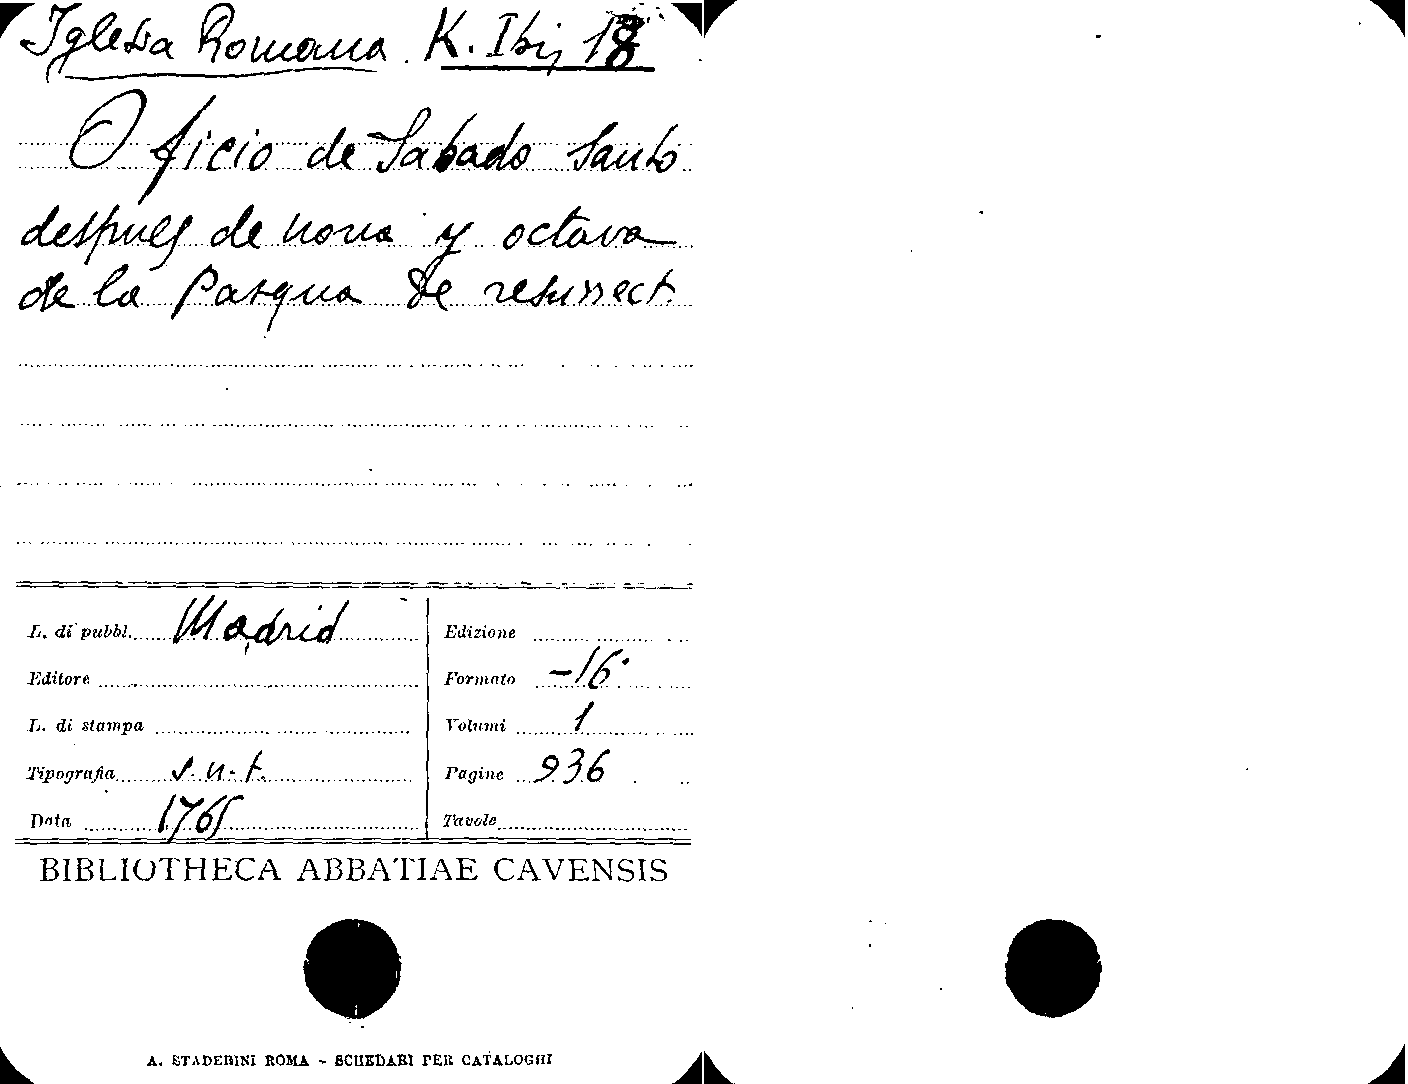 Iglesia Romana K. Ibis 18
Oficio de Sabado Santo
despues de nona y octava
de la Pasqua de resurrect.
L. di pubbl. Madrid
Editore
L. di stampa
Tipografia s.n.t.
Data 1765
Edizione
Formato -16°
Volumi 1
Pagine 936
Tavole
BIBLIOTHECA ABBATIAE CAVENSIS
A. STADERINI ROMA - SCHEDARI PER CATALOGHI